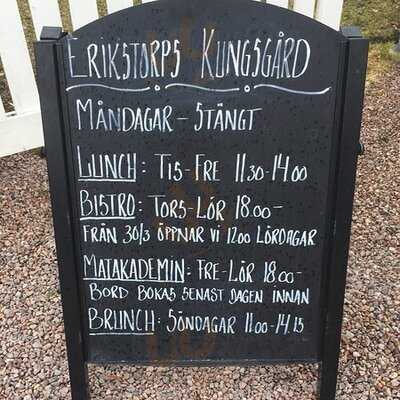 ERIKSTORPS KUNGSGÅRD
MÅNDAGAR - STÄNGT
LUNCH: TIS-FRE 11.30-14.00
BISTRO: TORS-LÖR 18.00-
FRÅN 30/3 ÖPPNAR VI 12.00 LÖRDAGAR
MATAKADEMIN: FRE-LÖR 18.00-
BORD BOKAS SENAST DAGEN INNAN
BRUNCH: SÖNDAGAR 11.00-14.15